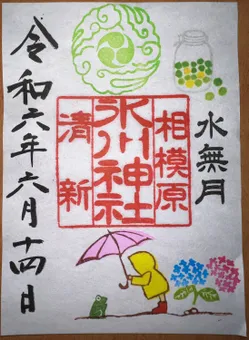 水無月
相模原
氷川神社
清新
令和六年六月十四日